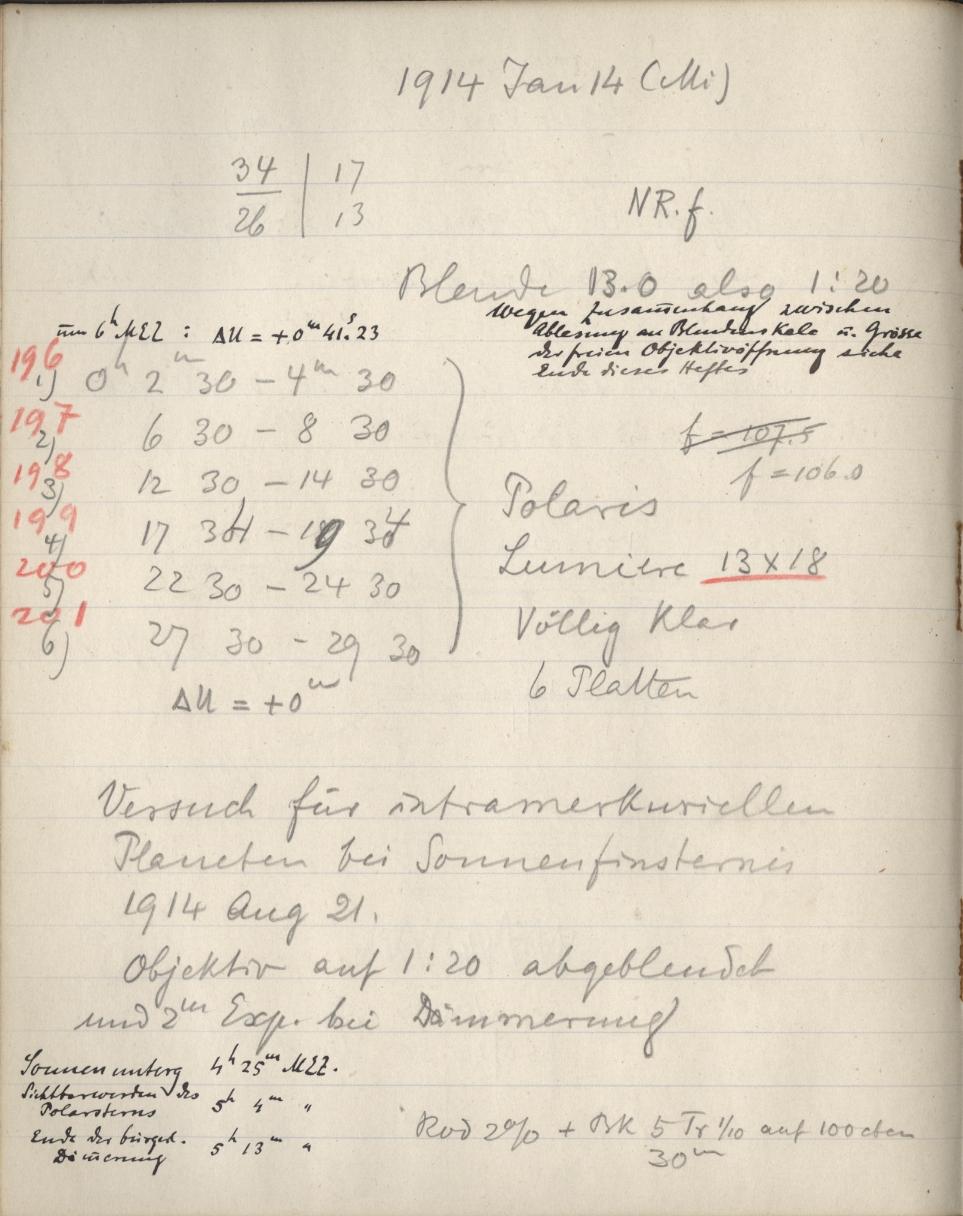 1914 Jan 14 (Mi)
34 | 17
26 | 13
NR. f.
Blende 13.0 also 1:20
Wegen Zusammenhang zwischen
Ablesung an Blendenskale u. Grösse
der freien Objektivöffnung siehe
Ende dieses Heftes
um 6h MEZ : ΔU = +0m 41s.23
196
1) 0h 2m 30 – 4m 30
197
2) 6 30 – 8 30
198
3) 12 30 – 14 30
199
4) 17 34 – 19 34
200
5) 22 30 – 24 30
201
6) 27 30 – 29 30
ΔU = +0m
f = 107.5
f = 106.0
Polaris
Lumière 13 x 18
Völlig Klar
6 Platten
Versuch für intramerkuriellen
Planeten bei Sonnenfinsternis
1914 Aug 21.
Objektiv auf 1:20 abgeblendet
und 2m Exp. bei Dämmerung
Sonnenunterg 4h 25m MEZ.
Sichtbarwerden des
Polarsterns 5h 4m "
Ende der bürgerl.
Dämerung 5h 13m "
Rod 2% + BK 5 Tr 1/10 auf 100 cbcm
30m